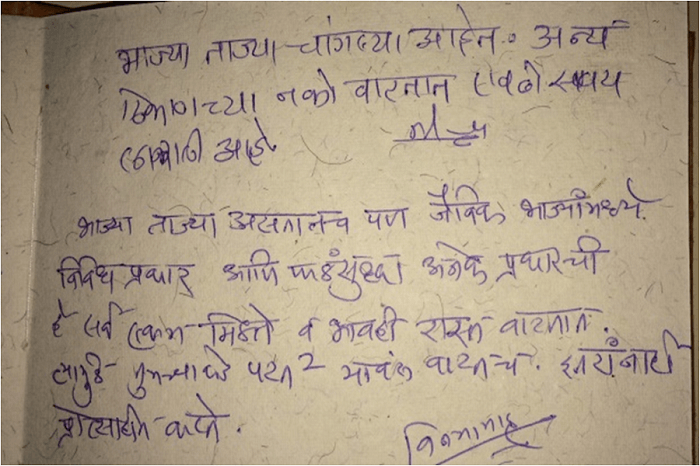 भाज्या ताज्या चांगल्या आहेत. अन्य
ठिकाणच्या नको वाटतात एवढी सवय
लागली आहे
भाज्या ताज्या असतातच पण जैविक भाज्यांमध्ये
विविध प्रकार आणि फळंसुद्धा अनेक प्रकारची
हे सर्व एकत्र मिळते व भावही रास्त वाटतात.
त्यामुळे तुमच्याकडे परत २ यावंसं वाटतंच. इतरांनाही
प्रोत्साहीत करते.